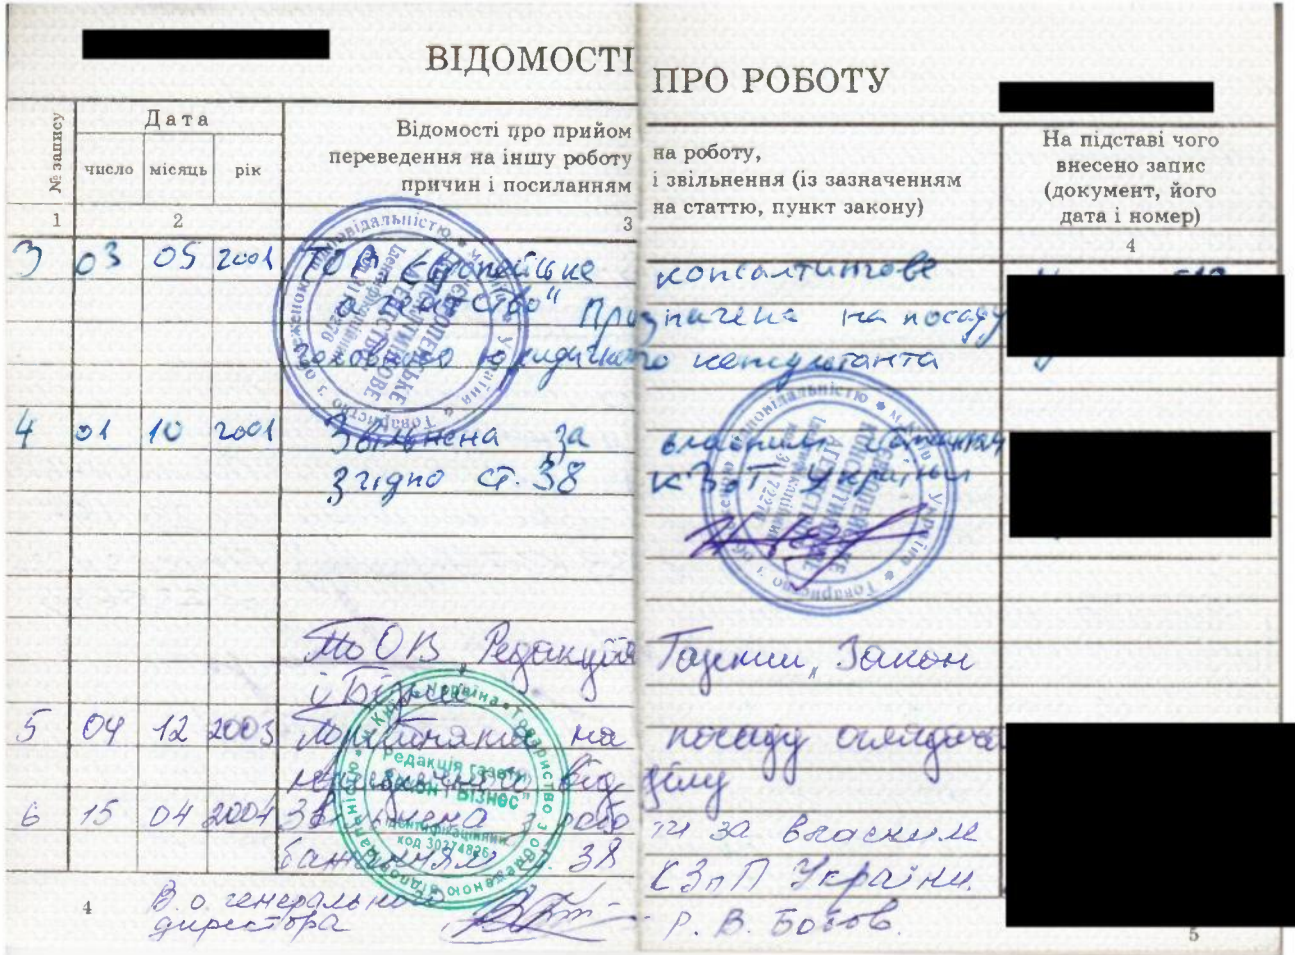 ВІДОМОСТІ ПРО РОБОТУ
№ запису
Дата
число місяць рік
Відомості про прийом на роботу,
переведення на іншу роботу і звільнення (із зазначенням
причин і посиланням на статтю, пункт закону)
На підставі чого
внесено запис
(документ, його
дата і номер)
1 2 3 4
3 03 05 2001 ТОВ "Європейське консалтингове
агентство" Призначена на посаду
головного юридичного консультанта
4 01 10 2001 Звільнена за власним бажанням
згідно ст. 38 КЗпП України
ТзОВ Редакція Газети „Закон
і Бізнес"
5 04 12 2003 Прийнята на посаду оглядача
юридичного відділу
6 15 04 2004 Звільнена з роботи за власним
бажанням ст. 38 КЗпП України.
В. о. генерального
директора
Р. В.Ботов.
Редакція газети
"Закон і Бізнес"
Ідентифікаційний
код 30374826
4
5